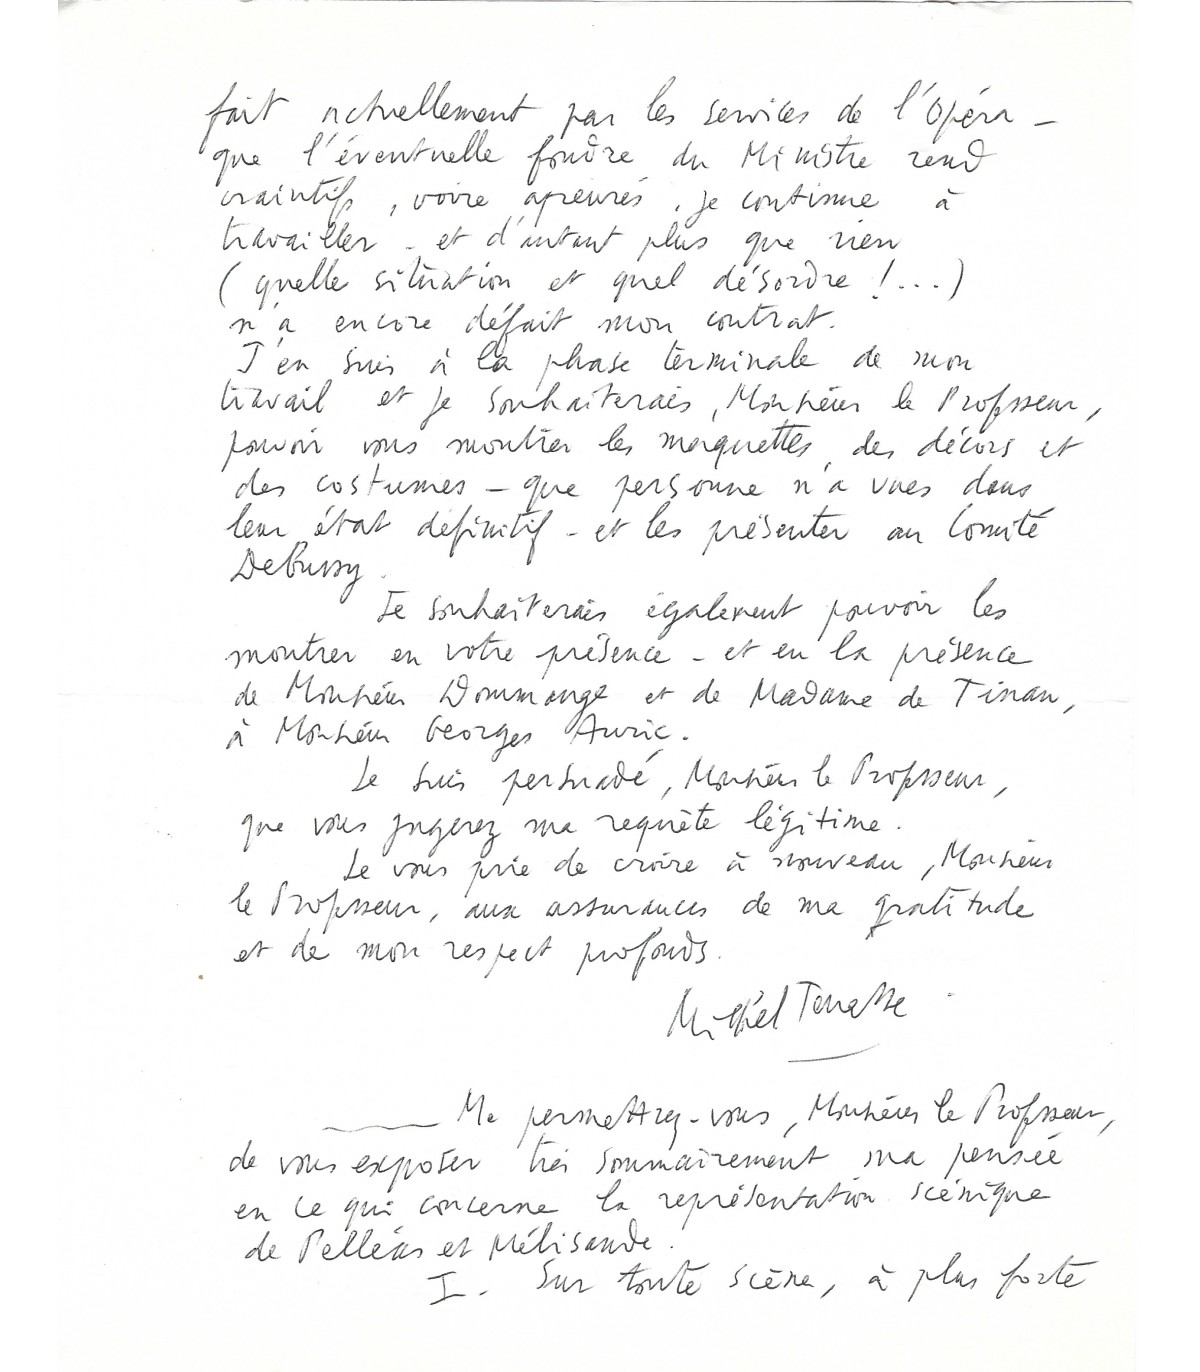 fait actuellement par les services de l'Opéra -
que l'éventuelle foudre du Ministre rend
craintifs, voire apeurés, je continue à
travailler - et d'autant plus que rien
(quelle situation et quel désordre !...)
n'a encore défait mon contrat.
J'en suis à la phase terminale de mon
travail et je souhaiterais, Monsieur le Professeur,
pouvoir vous montrer les maquettes, des décors et
des costumes - que personne n'a vues dans
leur état définitif - et les présenter au Comité
Debussy.
Je souhaiterais également pouvoir les
montrer en votre présence - et en la présence
de Monsieur Dommange et de Madame de Tinan,
à Monsieur Georges Auric.
Je suis persuadé, Monsieur le Professeur,
que vous jugerez ma requête légitime.
Je vous prie de croire à nouveau, Monsieur
le Professeur, aux assurances de ma gratitude
et de mon respect profonds.
Michel
Me permettez-vous, Monsieur le Professeur,
de vous exposer très sommairement ma pensée
en ce qui concerne la représentation scénique
de Pelléas et Mélisande.
I. Sur toute scène, à plus forte